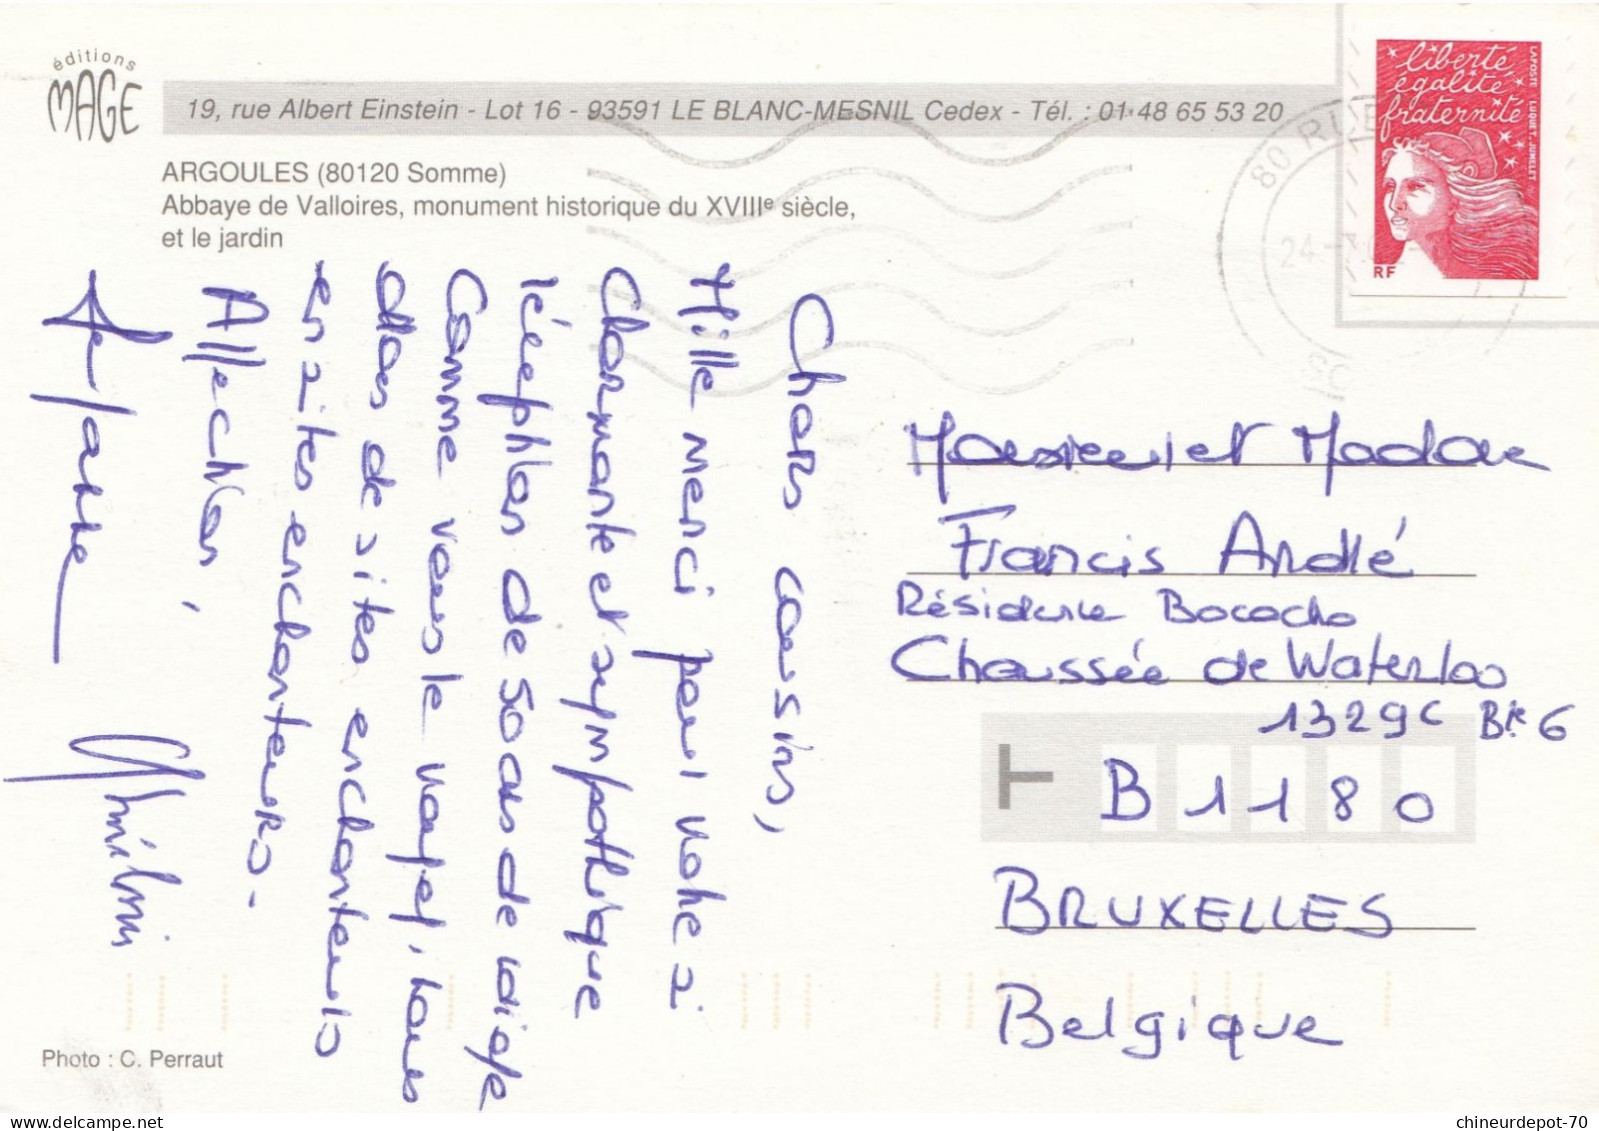 éditions
MAGE
19, rue Albert Einstein - Lot 16 - 93591 LE BLANC-MESNIL Cedex - Tél. : 01 48 65 53 20
ARGOULES (80120 Somme)
Abbaye de Valloires, monument historique du XVIIIe siècle,
et le jardin
Chers cousins,
Mille merci pour votre si
charmante et sympathique
réception de 50 ans de
Comme vous le voyez, nous
allons de sites enchanteurs
en sites enchanteurs.
Affection,
liberté
égalité
fraternité
LAPOSTE LUQUET. JUMELET
RF
80 RUE
24-
80
Monsieur et Madame
Francis André
Résidence
Chaussée de Waterloo
1329c Bte 6
B 1180
BRUXELLES
Belgique
Photo : C. Perraut
www.delcampe.net
chineurdepot-70